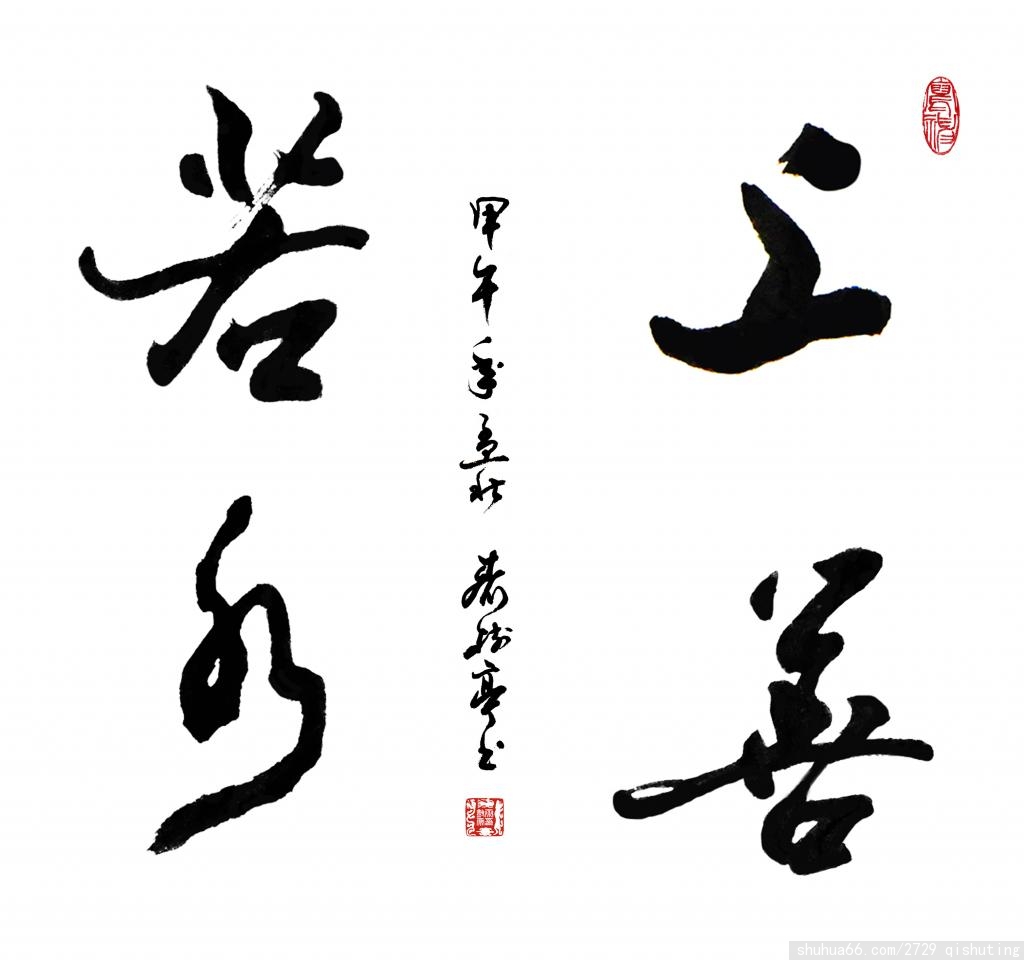 上善
若水
甲午年孟秋 戚树亭书
shuhua66.com/2729 qishuting